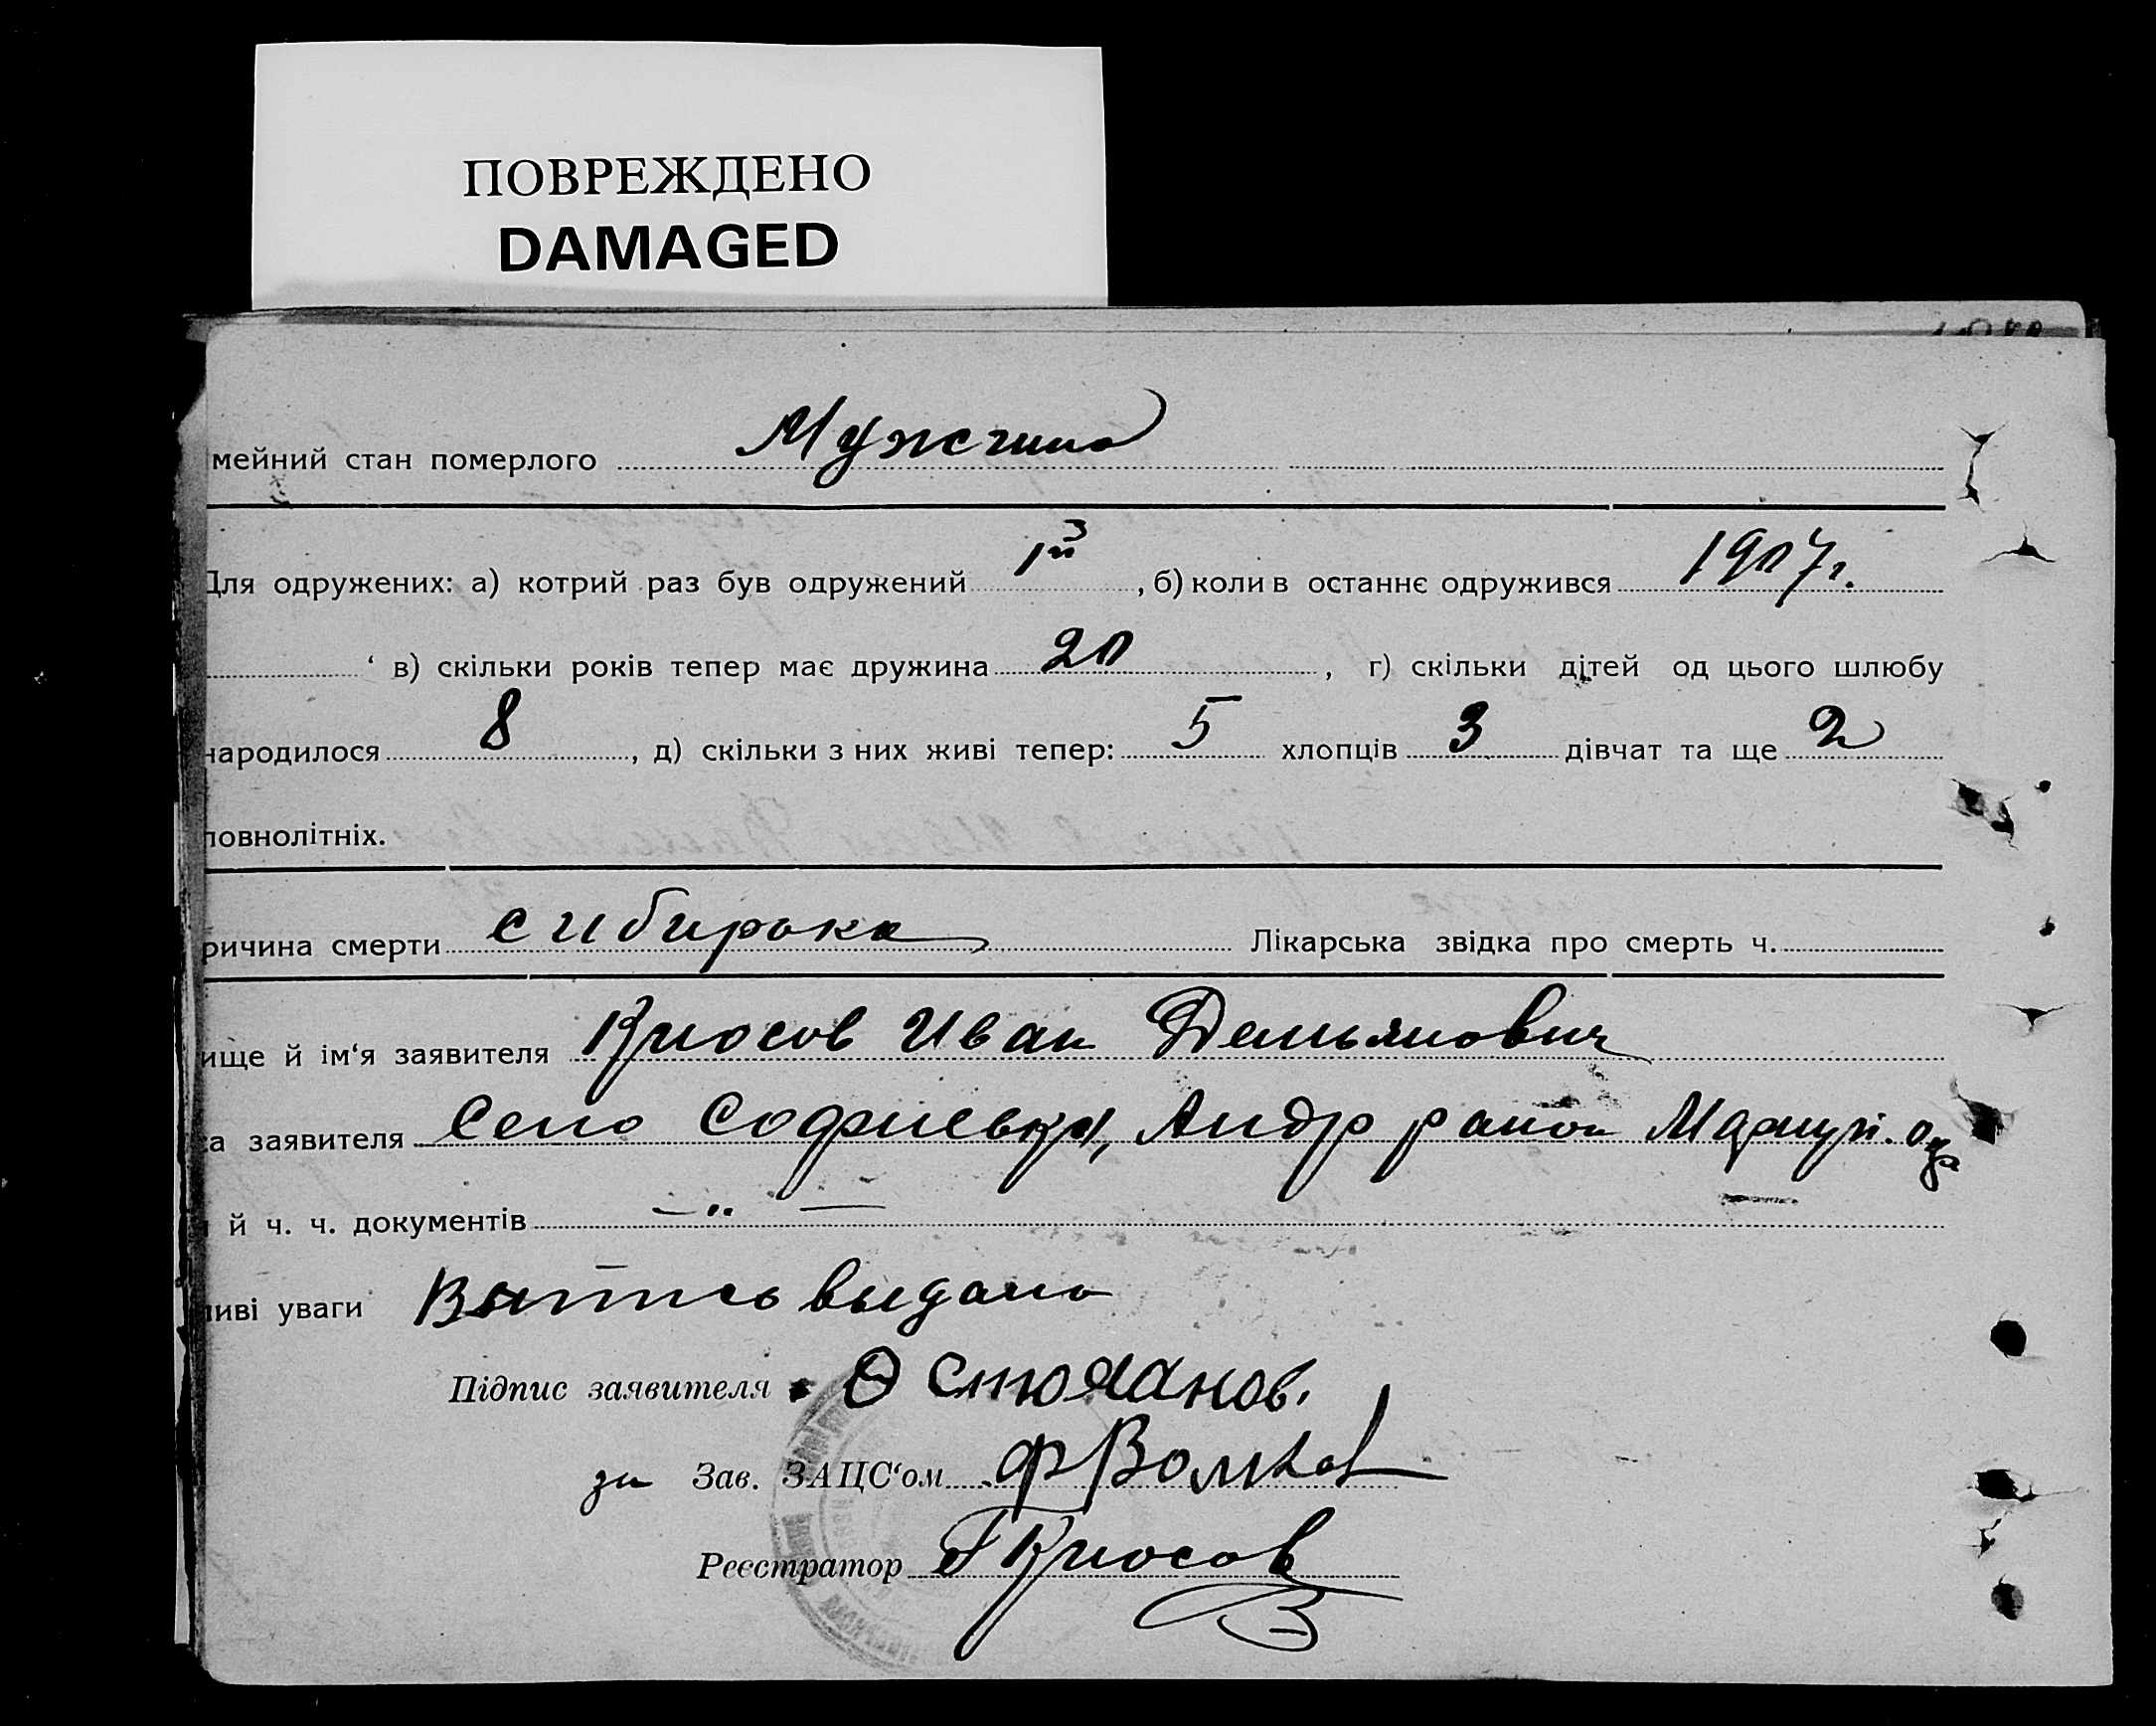 ПОВРЕЖДЕНО
DAMAGED
мейний стан померлого Мужчина
Для одружених: а) котрий раз був одружений 1й, б) коли в останнє одружився 1907г.
в) скільки років тепер має дружина 20, г) скільки дітей од цього шлюбу
народилося 8, д) скільки з них живі тепер: 5 хлопців 3 дівчат та ще 2
повнолітніх.
ричина смерти сибирака Лікарська звідка про смерть ч.
ище й ім‘я заявителя Крюсов Иван Демьянович
а заявителя Село Софиевка, Андр район Мариуп. окр
й ч. ч. документів
иві уваги Выпись выдана
Підпис заявителя
за Зав. ЗАЦС‘ом ФВолков
Реєстратор Крюсов